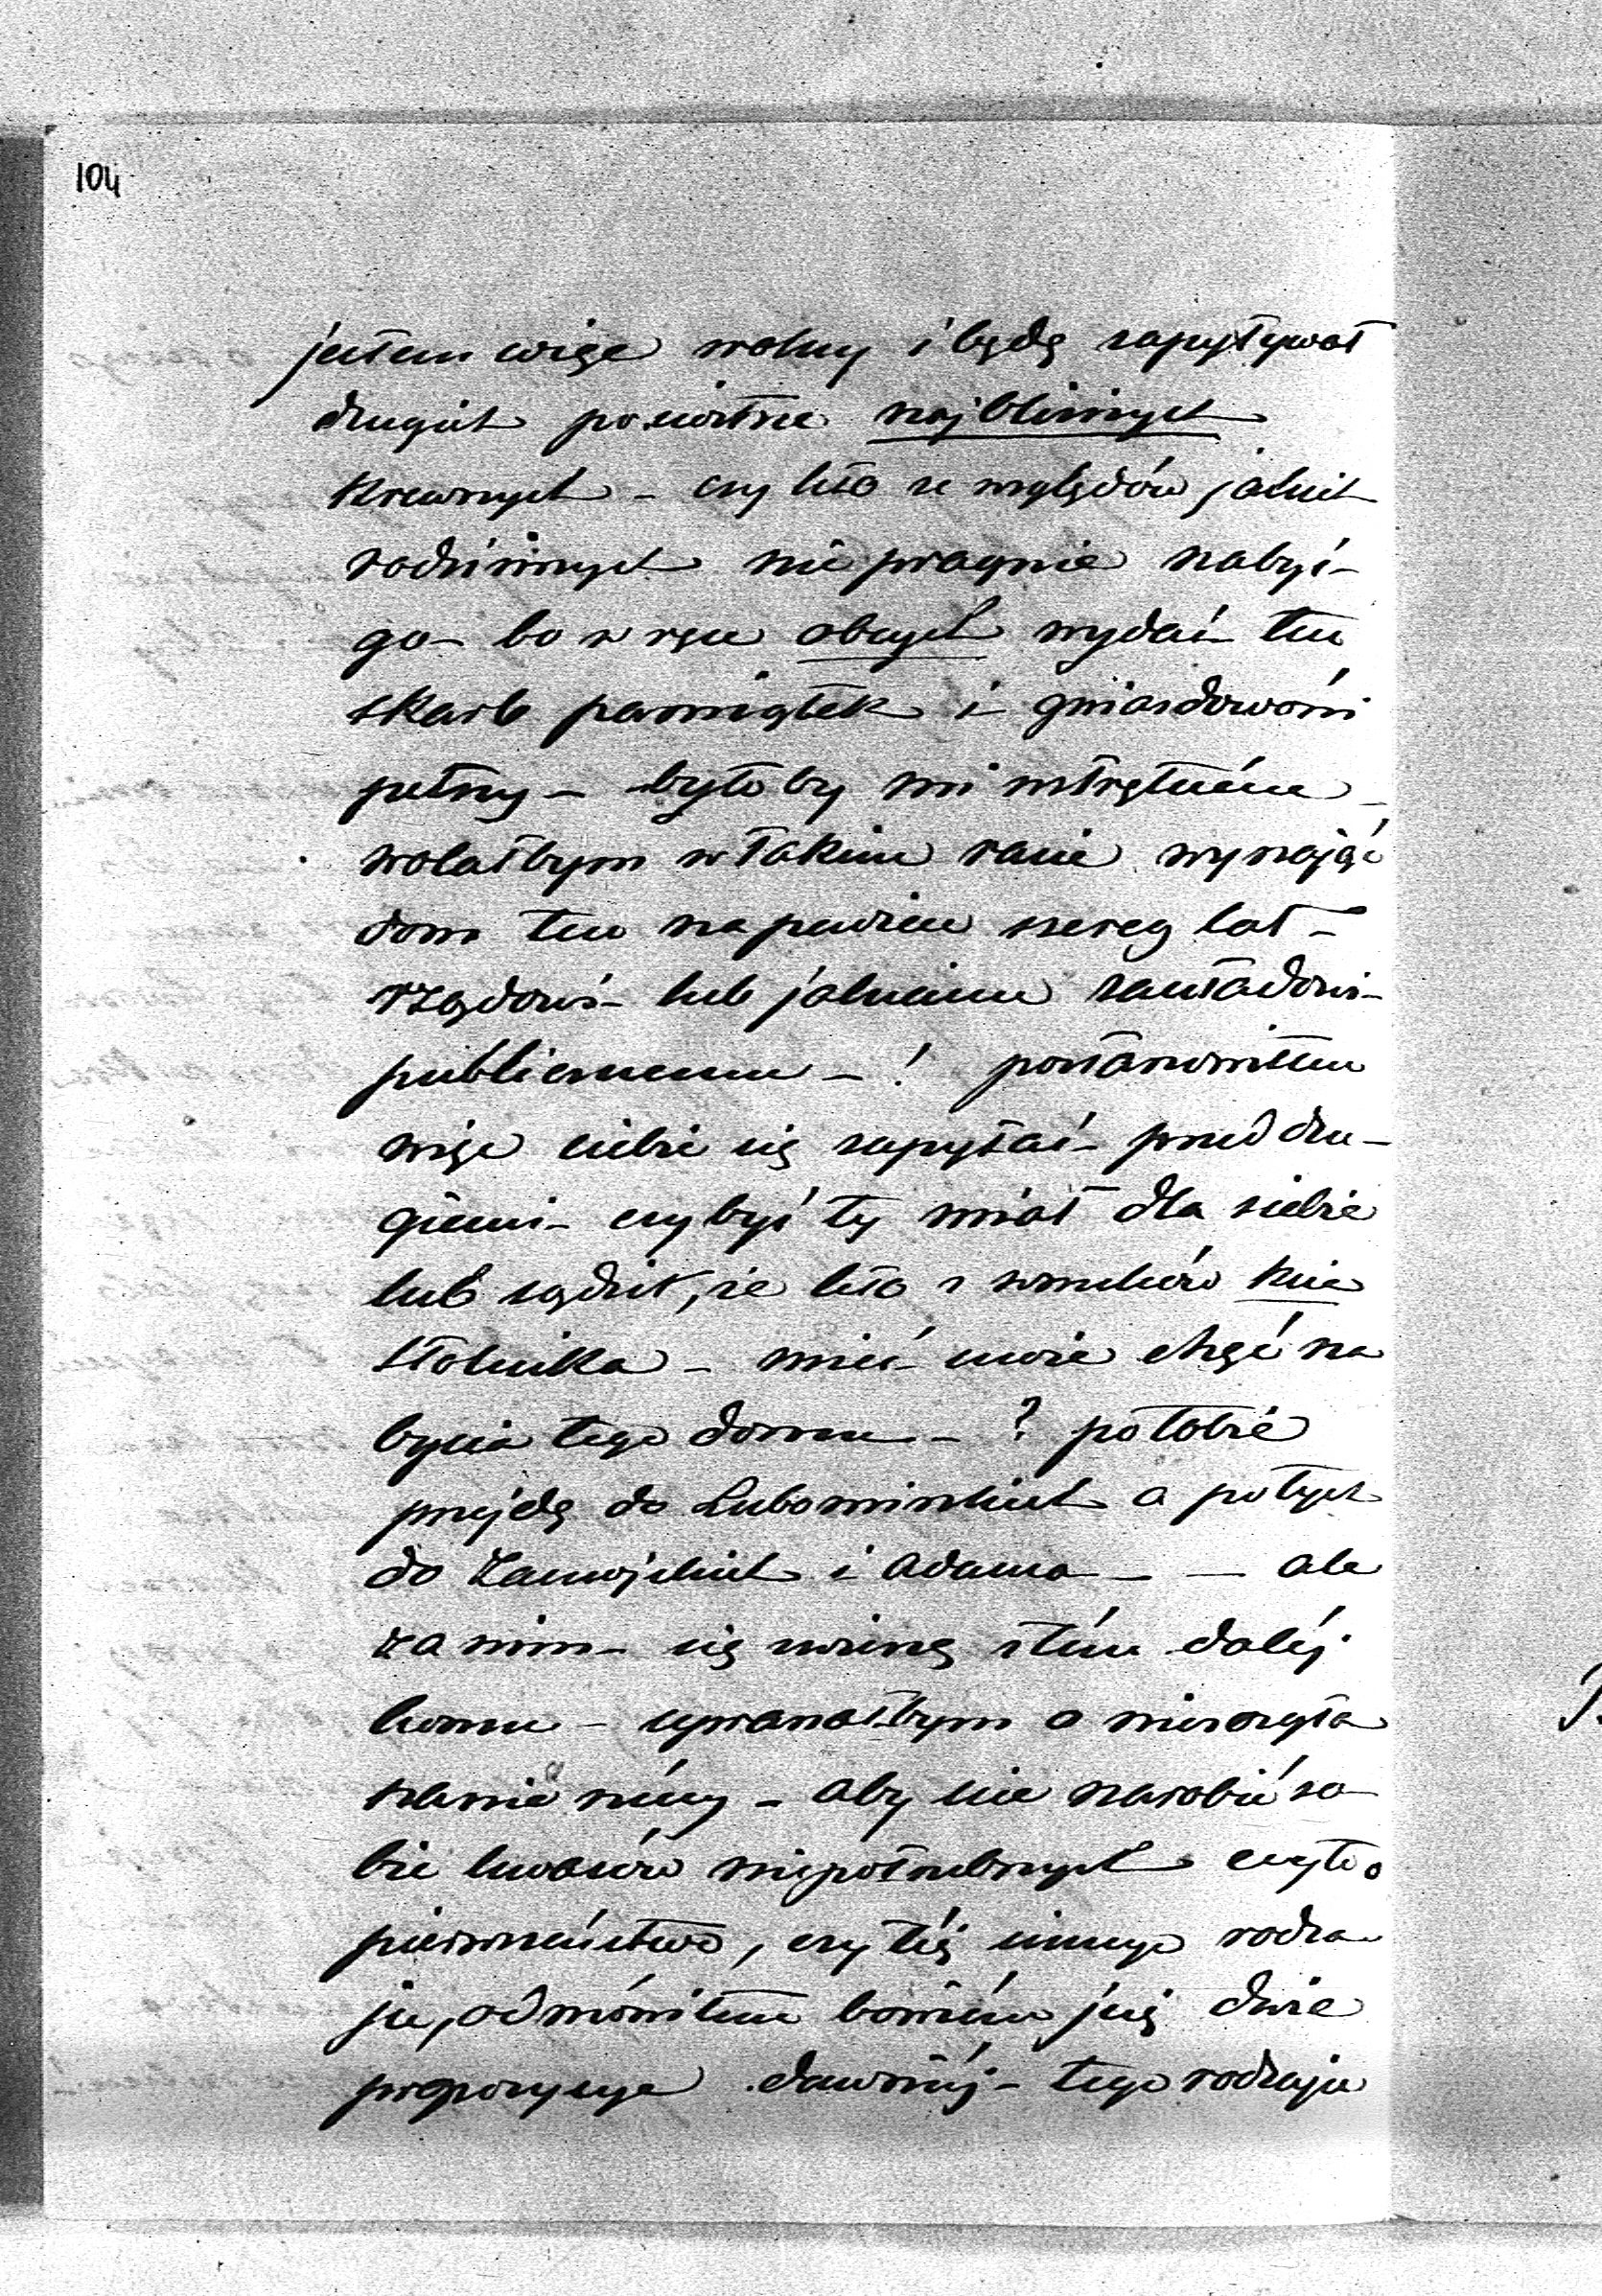 104
jestem więc wolny i będę zapytywał
drugich po siostrze najbliższych
krewnych – czy kto ze względów jakich
rodzinnych nie pragnie nabyć –
go – bo w ręce obcych wydać ten
skarb pamiątek i gniazdowości
pełny – byłoby mi wstrętném –
wolałbym w takim razie wynająć
dom ten na pewien szereg lat –
rządowi – lub jakiemu zakładowi –
publicznemu – ! postanowiłem
więc ciebie się zapytać – przed dru –
giemi – czybyś ty miał dla siebie
lub sądził, że kto z wnuków Xcia
Stolnika – mieć może chęć na
bycia tego domu – ? po tobie
przejdę do Lubomirskich a po tych
do Zamojskich i Adama – – ale
za nim – się zwrócę z tém daléj
komu – upraszałbym o nierozgła
szanie rzeczy – aby nie narobić so
bie kwasów niepotrzebnych czyto o
pierwszeństwo, czy téż innego rodza
ju, odmówiłem bowiem już dwie
propozycye dawniéj – tego rodzaju